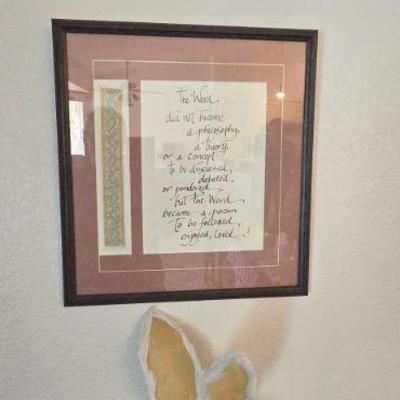 the Word
did not become
a philosophy,
a theory,
or a concept
to be discussed,
debated,
or pondered
but the Word
became a person
to be followed,
enjoyed, loved!